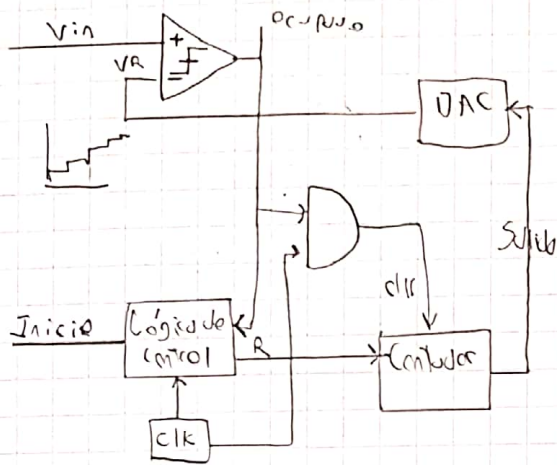 Vin
VR
Ocupado
DAC
Salida
clk
Inicio
Lógica de
control
R
Contador
Clk